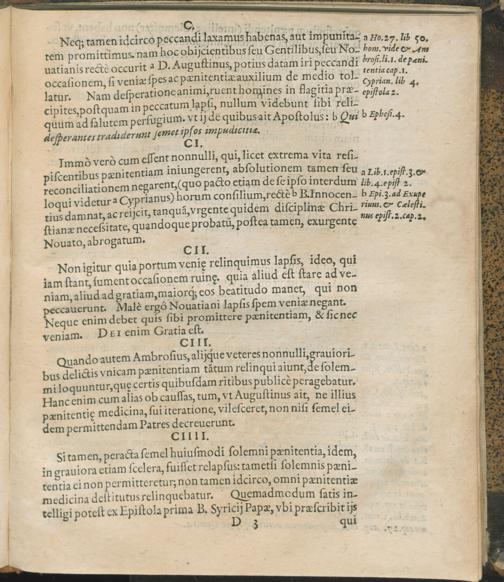 C.
Neq; tamen idcirco peccandi laxamus habenas, aut impunita-
tem promittimus. nam hoc obijcientibus seu Gentilibus, seu No-
uatianis rectè occurit a D. Augustinus, potius datam iri peccandi
occasionem, si veniæ spes ac pænitentiæ auxilium de medio tol-
latur. Nam desperatione animi, ruent homines in flagitia præ-
cipites, postquam in peccatum lapsi, nullum videbunt sibi reli-
quum ad salutem perfugium. vt ij de quibus ait Apostolus: b Qui
desperantes tradiderunt semet ipsos impudicitiæ.
a Ho. 27. lib 50.
hom. vide & Am
bros. li. 1. de pæni.
tentia cap. 1.
Cyprian. lib 4.
epistola 2.
b Ephesi. 4.
CI.
Immò verò cum essent nonnulli, qui, licet extrema vita resi-
piscentibus pænitentiam iniungerent, absolutionem tamen seu
reconciliationem negarent, (quo pacto etiam de se ipso interdum
loqui videtur a Cyprianus) horum consilium, rectè b B. Innocen-
tius damnat, ac reijcit, tanquã, vrgente quidem disciplinæ Chri-
stianæ necessitate, quandoque probatũ, postea tamen, exurgente
Nouato, abrogatum.
a Lib. 1. epist. 3. &
lib. 4. epist 2.
b Epi. 3. ad Exupe
rium. & Cælesti-
nus epist. 2. cap. 2.
CII.
Non igitur quia portum venię relinquimus lapsis, ideo, qui
iam stant, sument occasionem ruinę. quia aliud est stare ad ve-
niam, aliud ad gratiam, maiorq; eos beatitudo manet, qui non
peccauerunt. Malè ergò Nouatiani lapsis spem veniæ negant.
Neque enim debet quis sibi promittere pænitentiam, & sic nec
veniam. DEI enim Gratia est.
CIII.
Quando autem Ambrosius, alijque veteres nonnulli, grauiori-
bus delictis vnicam pænitentiam tãtum relinqui aiunt, de solem-
mi loquuntur, quę certis quibusdam ritibus publicè peragebatur.
Hanc enim cum alias ob caussas, tum, vt Augustinus ait, ne illius
pænitentię medicina, sui iteratione, vilesceret, non nisi semel ei-
dem permittendam Patres decreuerunt.
CIIII.
Si tamen, peracta semel huiusmodi solemni pænitentia, idem,
in grauiora etiam scelera, fuisset relapsus: tametsi solemnis pæni-
tentia ei non permitteretur; non tamen idcirco, omni pænitentiæ
medicina destitutus relinquebatur. Quemadmodum satis in-
telligi potest ex Epistola prima B. Syricij Papæ, vbi præscribit ijs
D 3 qui